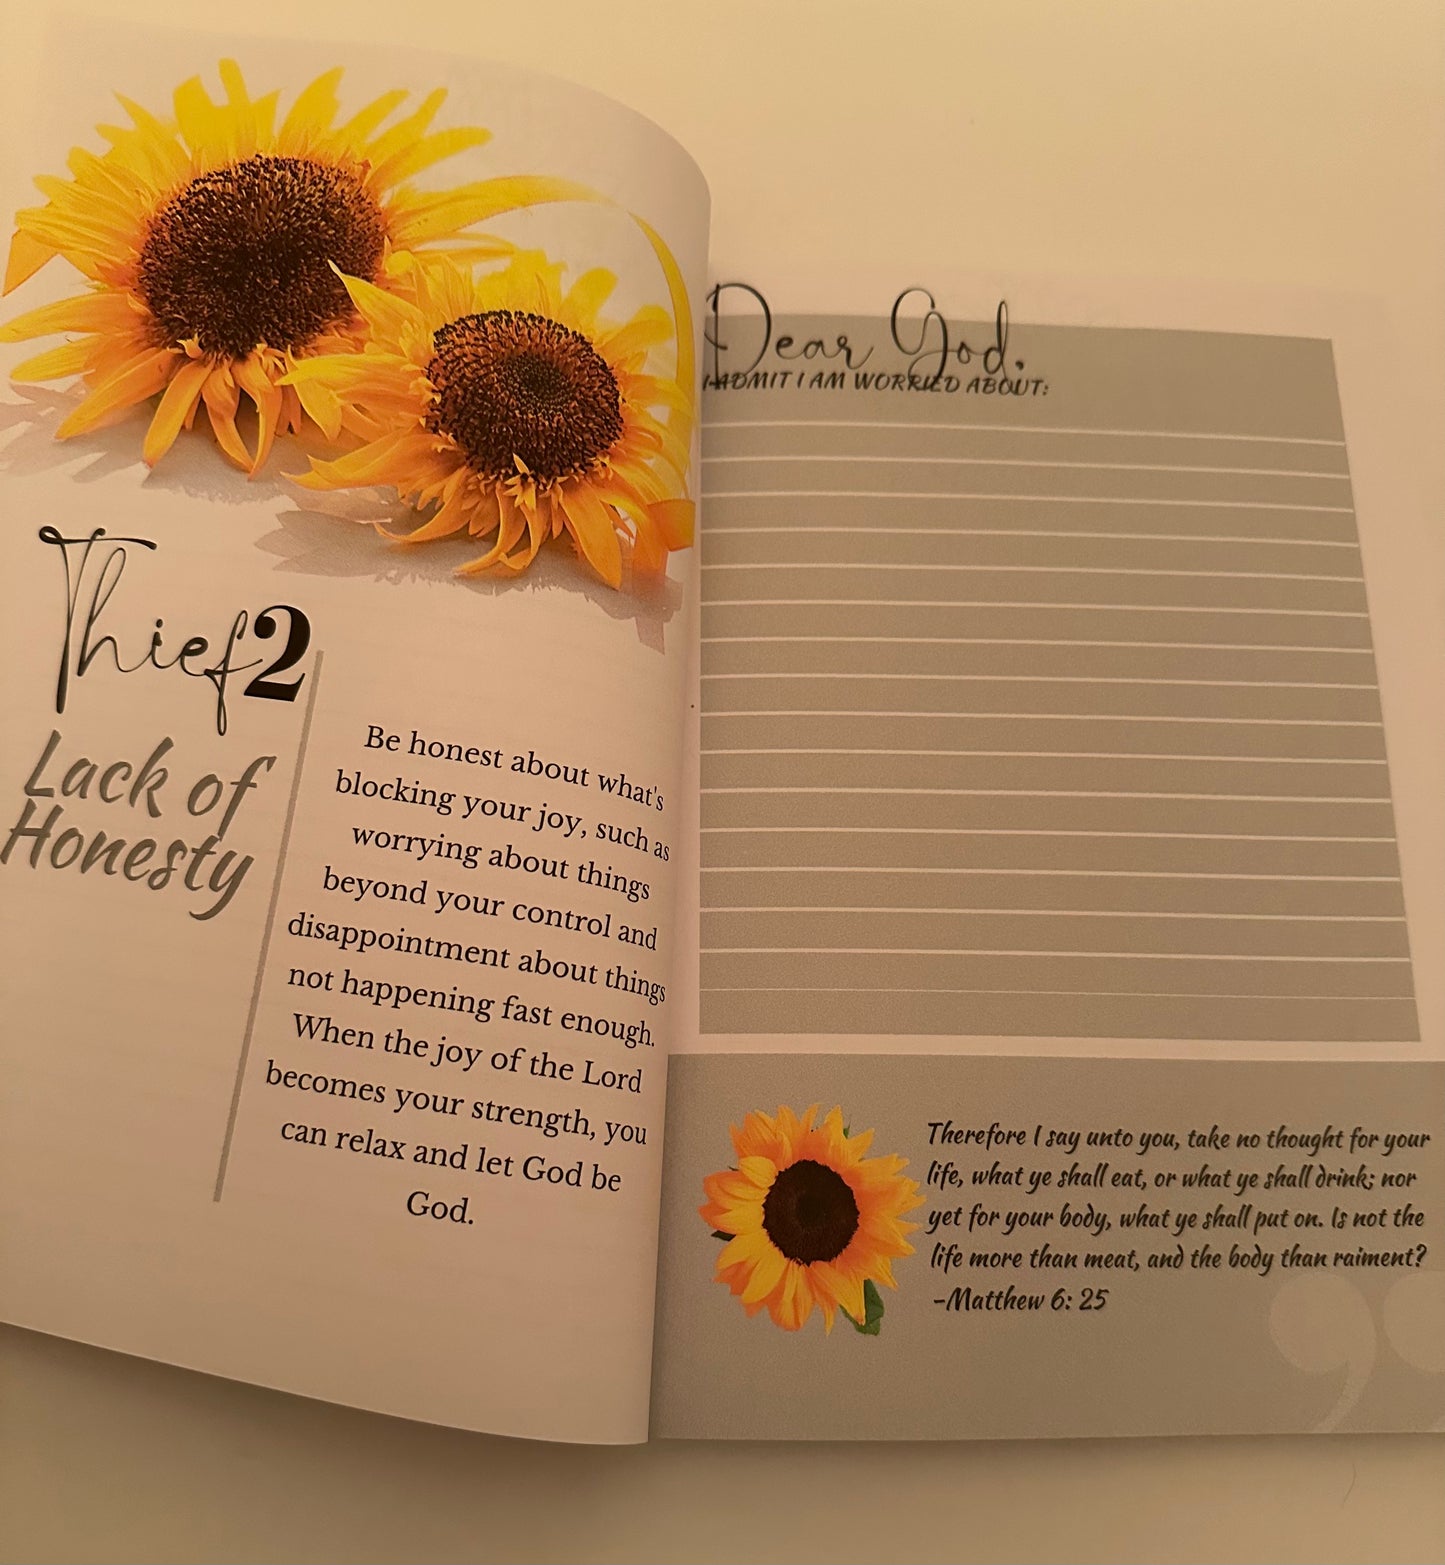 Thief2
Lack of
Honesty
Be honest about what's
blocking your joy, such as
worrying about things
beyond your control and
disappointment about things
not happening fast enough.
When the joy of the Lord
becomes your strength, you
can relax and let God be
God.
Dear God,
I ADMIT I AM WORRIED ABOUT:
Therefore I say unto you, take no thought for your
life, what ye shall eat, or what ye shall drink; nor
yet for your body, what ye shall put on. Is not the
life more than meat, and the body than raiment?
-Matthew 6: 25